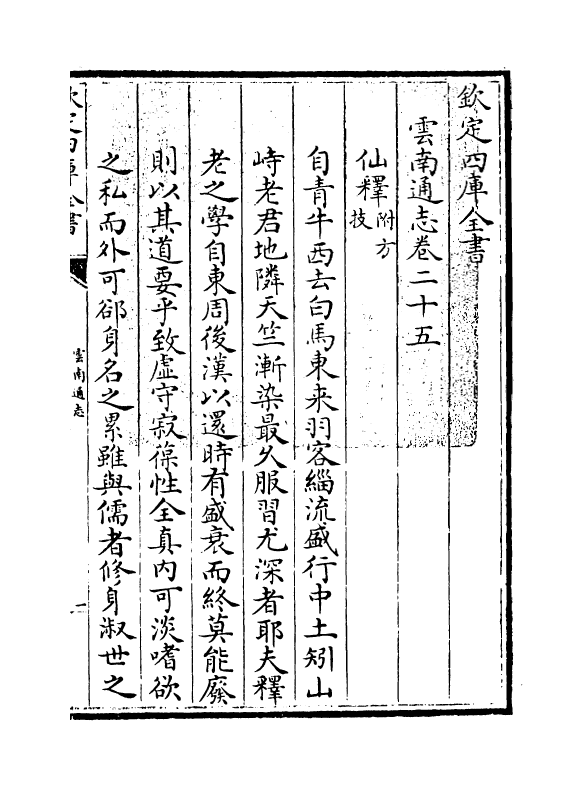 欽定四庫全書
雲南通志卷二十五
仙釋附方技
自青牛西去白馬東来羽客緇流盛行中土矧山
峙老君地隣天竺漸染最久服習尤深者耶夫釋
老之學自東周後漢以還時有盛衰而終莫能廢
則以其道要乎致虛守寂葆性全真内可淡嗜欲
之私而外可郤身名之累雖與儒者修身淑世之
欽定四庫全書
雲南通志
一